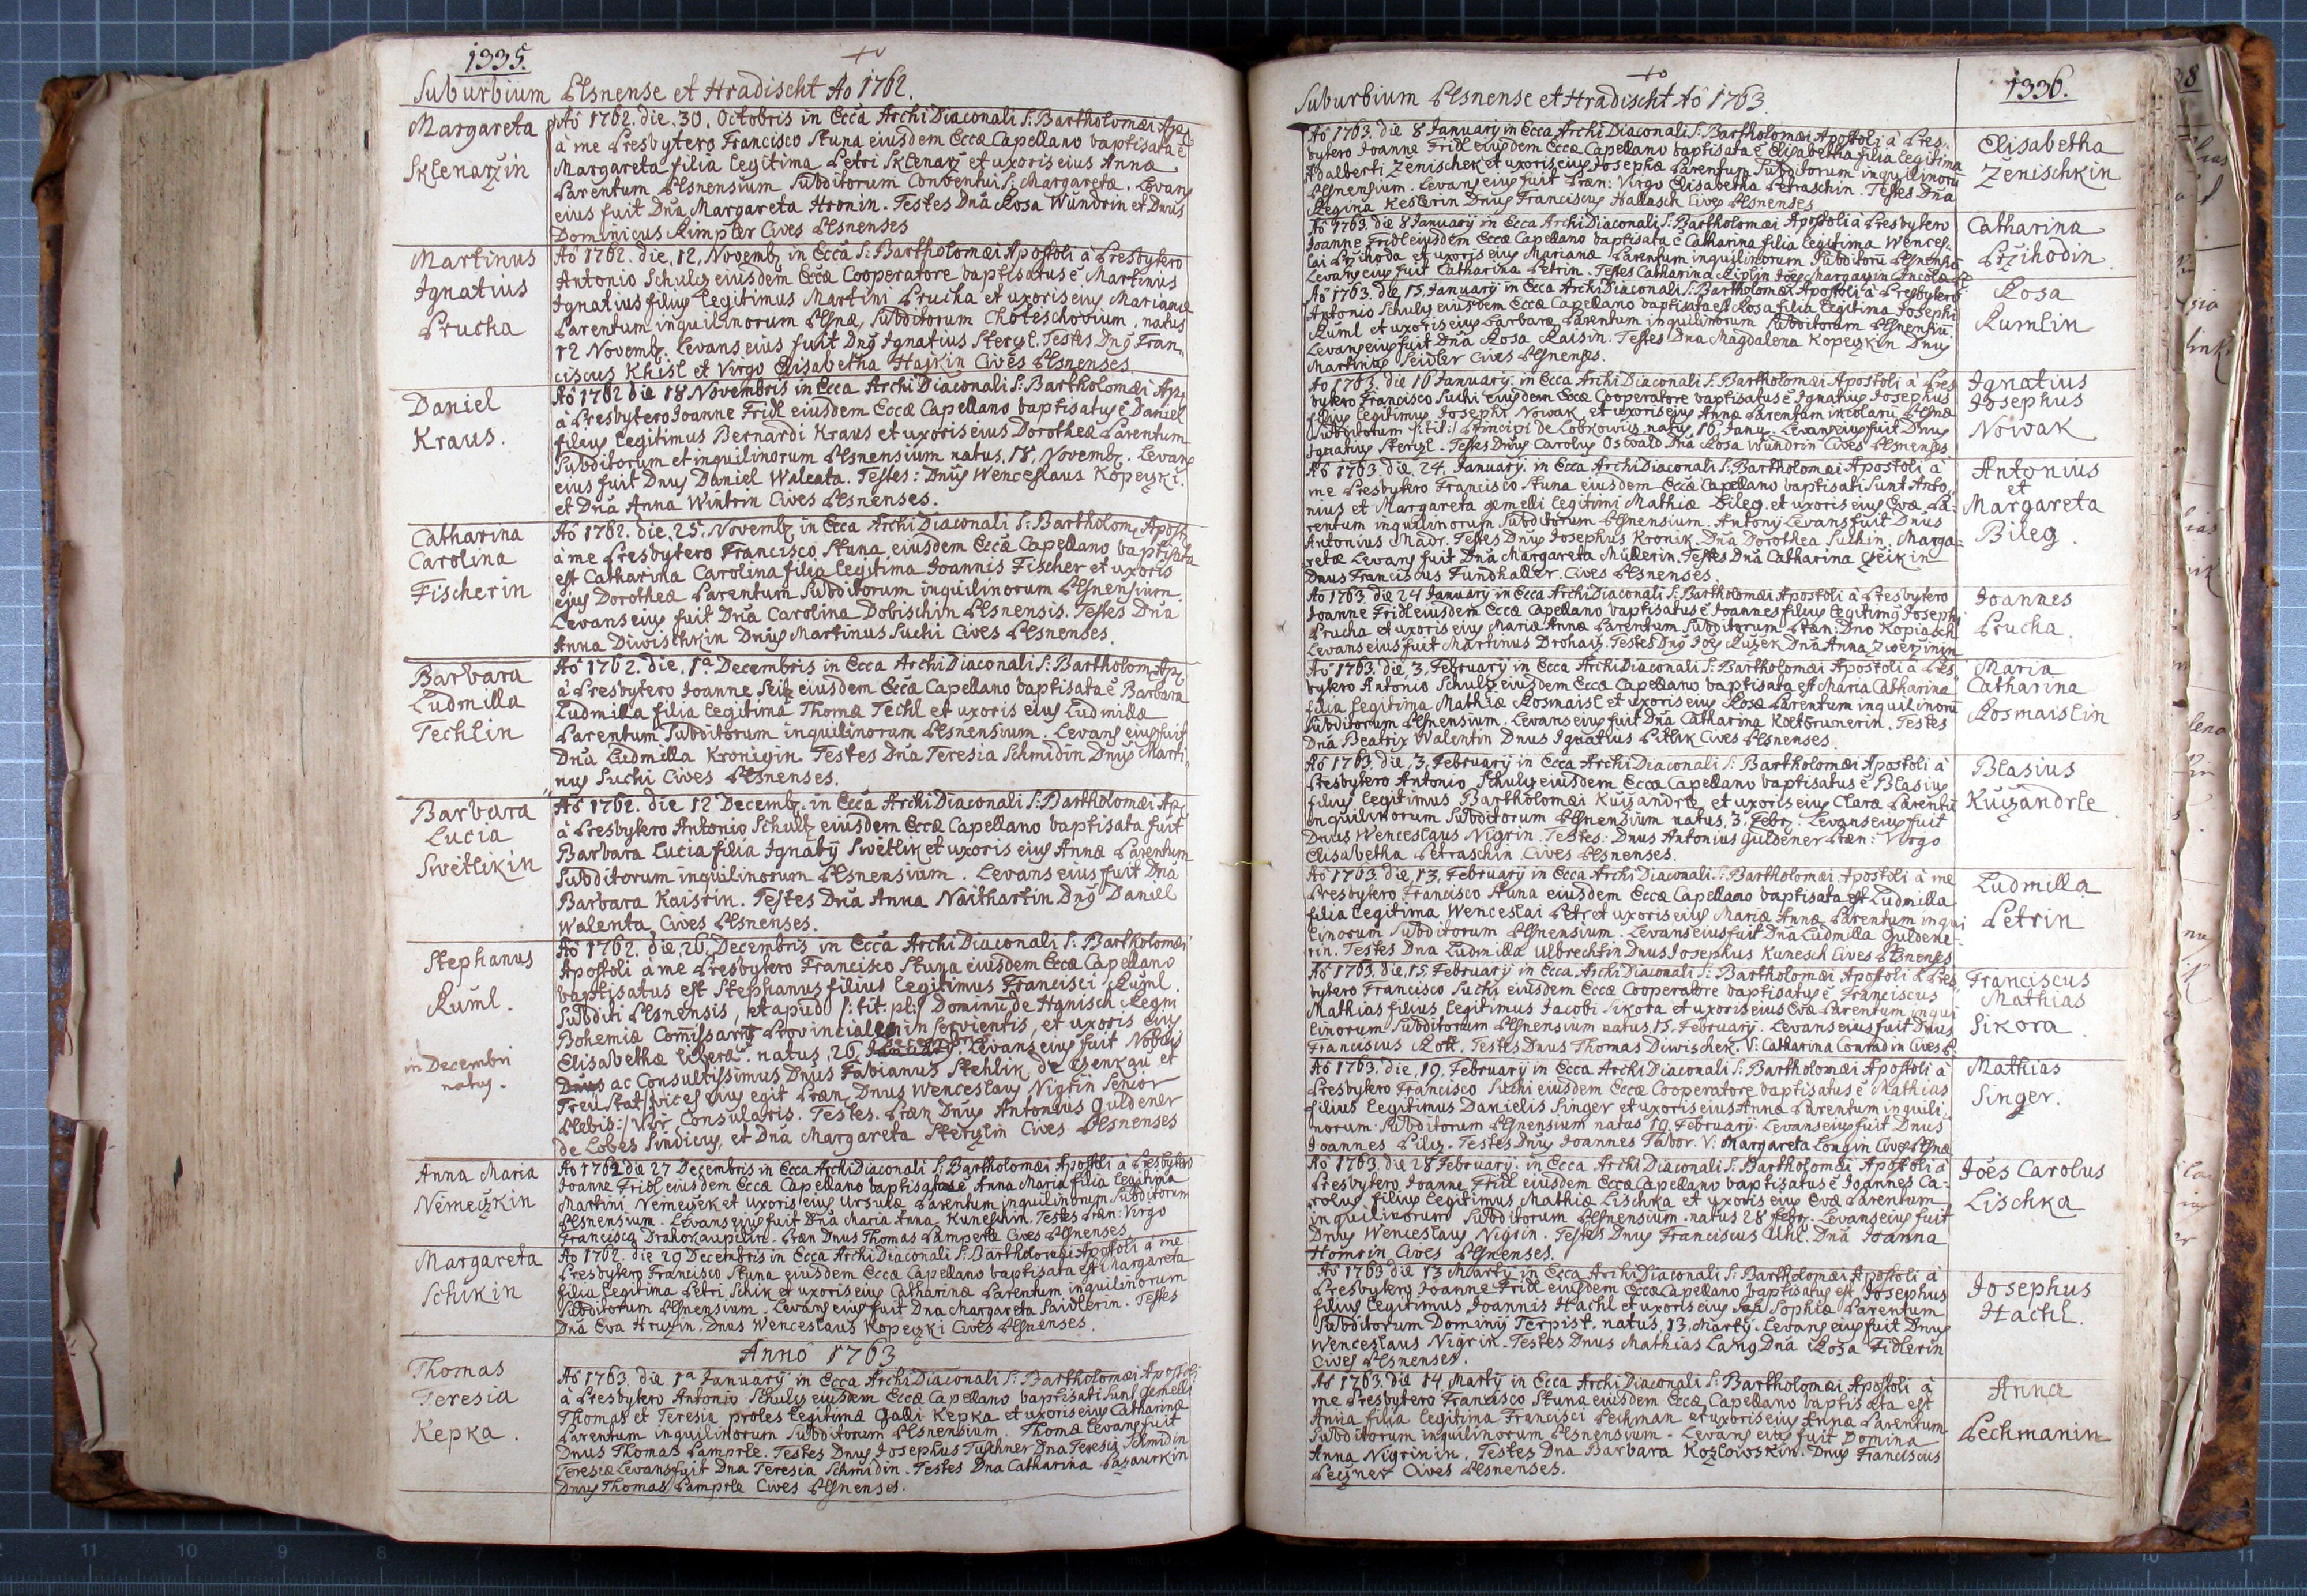 1335.
Suburbium Plsnense et Hradischt Ao 1762.
Margareta
Sklenarzin
Ao 1762. die. 30. Octobris in Ecca ArchiDiaconali S: Bartholomæi Ap:
à me Presbytero Francisco Stuna eiusdem Eccæ Capellano baptisata e
Margareta filia legitima Petri Sklenarz et uxoris eius Annæ
Parentum Plsnensium Subditorum Conventui S: Margaretæ. Levans
eius fuit Dna Margareta Hronin. Testes Dna Rosa Wundrin et Dnus
Dominicus Rimpler Cives Plsnenses
Martinus
Ignatius
Prucha
Ao 1762. die, 12, Novemb: in Ecca S: Bartholomæi Apostoli à Presbytero
Antonio Schulz eiusdem Eccæ Cooperatore baptisatus e Martinus
Ignatius filius legitimus Martini Prucha et uxoris eius Marianæ
Parentum inquilinorum Plsnæ, Subditorum Choteschovium, natus
12 Novemb: Levans eius fuit Dnus Ignatius Steryl. Testes Dnus Fran-
ciscus Khisl et Virgo Elisabetha Hazkin Cives Plsnenses.
Daniel
Kraus.
Ao 1762 die 18 Novembris in Ecca ArchiDiaconali S: Bartholomæi Ap:
à Presbytero Joanne Fridl eiusdem Eccæ Capellano baptisatus e Daniel
filius legitimus Bernardi Kraus et uxoris eius Dorotheæ Parentum
Subditorum et inquilinorum Plsnensium natus, 18, Novemb: Levans
eius fuit Dnus Daniel Waleata. Testes: Dnus Wenceslaus Kopezki.
et Dna Anna Wintrin Cives Plsnenses.
Catharina
Carolina
Fischerin
Ao 1762. die, 25, Novemb: in Ecca ArchiDiaconali S: Bartholom: Apost:
à me Presbytero Francisco Stuna eiusdem Eccæ Capellano baptisata
est Catharina Carolina filia legitima Joannis Fischer et uxoris
eius Dorotheæ Parentum Subditorum inquilinorum Plsnensium.
Levans eius fuit Dna Carolina Dobischin Plsnensis. Testes Dna
Anna Diwischkin Dnus Martinus Suchi Cives Plsnenses.
Barbara
Ludmilla
Techlin
Ao 1762. die. 1a Decembris in Ecca ArchiDiaconali S: Bartholom: Ap:
à Presbytero Joanne Seitz eiusdem Eccæ Capellano baptisata e Barbara
Ludmilla filia legitima Thomæ Techl et uxoris eius Ludmillæ
Parentum Subditorum inquilinorum Plsnensium. Levans eius fuit
Dna Ludmilla Kronigin Testes Dna Teresia Schmidin Dnus Marti-
nus Suchi Cives Plsnenses.
Barbara
Lucia
Swetlikin
Ao 1762. die 12 Decemb: in Ecca ArchiDiaconali S: Bartholomæi Ap:
à Presbytero Antonio Schultz eiusdem Eccæ Capellano baptisata fuit
Barbara Lucia filia Ignatij Swetlik et uxoris eius Annæ Parentum
Subditorum inquilinorum Plsnensium. Levans eius fuit Dna
Barbara Kaisrin. Testes Dna Anna Naithartin Dnus Daniel
Walenta Cives Plsnenses.
Stephanus
Ruml.
in Decembri
natus.
Ao 1762. die, 26, Decembris in Ecca ArchiDiaconali S: Bartholomæi
Apostoli à me Presbytero Francisco Stuna eiusdem Eccæ Capellano
baptisatus est Stephanus filius legitimus Francisci Ruml.
Subditi Plsnensis, et apud /: tit: pl:/ Dominum de Hgnisch Regni
Bohemiæ Commissarium Provincialem in servientis, et uxoris eius
Elisabethæ liberæ. natus, 26, Levans eius fuit Nobilis
ac Consultissimus Dnus Fabianus Stehlik de Csenkau et
Treustat /: vices eius egit Præn: Dnus Wenceslaus Nigrin Senior
Plebis:/ Vir Consularis. Testes. Præn: Dnus Antonius Guldener
de Lobes Sindicus, et Dna Margareta Sterylin Cives Plsnenses
Anna Maria
Nemeczkin
Ao 1762 die 27 Decembris in Ecca ArchiDiaconali S: Bartholomæi Apostoli à Presbytero
Joanne Fridl eiusdem Eccæ Capellano baptisata e Anna Maria filia legitima
Martini Nemeczek et uxoris eius Ursulæ Parentum inquilinorum Subditorum
Plsnensium. Levans eius fuit Dna Maria Anna Kuneschin. Testes Præn: Virgo
Francisca Drahokaupilin. Præn: Dnus Thomas Pamperle Cives Plsnenses.
Margareta
Schikin
Ao 1762. die 29 Decembris in Ecca ArchiDiaconali S: Bartholomæi Apostoli à me
Presbytero Francisco Stuna eiusdem Eccæ Capellano baptisata est Margareta
filia legitima Petri Schik et uxoris eius Catharinæ Parentum inquilinorum
Subditorum Plsnensium. Levans eius fuit Dna Margareta Saidlerin. Testes
Dna Eva Hruzin. Dnus Wenceslaus Kopezki Cives Plsnenses.
Anno 1763
Thomas
Teresia
Kepka.
Ao 1763. die 1a January in Ecca ArchiDiaconali S: Bartholomæi Apostoli
à Presbytero Antonio Schulz eiusdem Eccæ Capellano baptisati sunt Gemelli
Thomas et Teresia proles legitimæ Galli Kepka et uxoris eius Catharinæ
Parentum inquilinorum Subditorum Plsnensium. Thomæ levans fuit
Dnus Thomas Pamprle. Testes Dnus Josephus Tuschner Dna Teresia Schmidin
Teresiæ Levans fuit Dna Teresia Schmidin. Testes Dna Catharina Pazaurkin
Dnus Thomas Pamprle Cives Plsnenses.
Suburbium Plsnense et Hradischt Ao 1763
1336.
Ao 1763. die 8 January in Ecca ArchiDiaconali S: Bartholomæi Apostoli à Pres-
bytero Joanne Fridl eiusdem Eccæ Capellano baptisata e Elisabetha filia legitima
Adalberti Zenischek et uxoris eius Josephæ Parentum Subditorum inquilinorum
Plsnensium. Levans eius fuit Præn: Virgo Elisabetha Petraschin. Testes Dna
Regina Keslerin Dnus Franciscus Hallasch Cives Plsnenses
Elisabetha
Zenischkin
Ao 1763. die 8 January in Ecca ArchiDiaconali S: Bartholomæi Apostoli à Presbytero
Joanne Fridl eiusdem Eccæ Capellano baptisata e Catharina filia legitima Wences-
lai Przihoda et uxoris eius Marianæ Parentum inquilinorum Subditorum Plsnensium
Levans eius fuit Catharina Petrin. Testes Catharina Riplin Joes Margawin Incolæ
Catharina
Przihodin
Ao 1763. die, 15, January in Ecca ArchiDiaconali S: Bartholomæi Apostoli à Presbytero
Antonio Schulz eiusdem Eccæ Capellano baptisata est Rosa filia legitima Josephi
Ruml et uxoris eius Barbaræ Parentum inquilinorum Subditorum Plsnensium.
Levans eius fuit Dna Rosa Raisin. Testes Dna Magdalena Kopezkin Dnus
Martinus Seidler Cives Plsnenses.
Rosa
Rumlin
Ao 1763. die 16 January in Ecca ArchiDiaconali S: Bartholomæi Apostoli à Pres-
bytero Francisco Suchi eiusdem Eccæ Cooperatore baptisatus e Ignatius Josephus
filius legitimus Josephi Nowak et uxoris eius Annæ Parentum incolarum Plsnæ
Subditorum /:tit:/ Principi de Lobkowicz natus, 16, Janu: Levans eius fuit Dnus
Ignatius Steryl. Testes Dnus Carolus Oswald Dna Rosa Wundrin Cives Plsnenses
Ignatius
Josephus
Nowak
Ao 1763. die, 24, January in Ecca ArchiDiaconali S: Bartholomæi Apostoli à
me Presbytero Francisco Stuna eiusdem Eccæ Capellano baptisati sunt Anto-
nius et Margareta gemelli legitimi Mathiæ Bileg et uxoris eius Evæ Pa-
rentum inquilinorum Subditorum Plsnensium. Antonij Levans fuit Dnus
Antonius Madr. Testes Dnus Josephus Kronik. Dna Dorothea Suchin. Marga-
retæ Levans fuit Dna Margareta Müllerin. Testes Dna Catharina Czeikin
Dnus Franciscus Fundhaller. Cives Plsnenses.
Antonius
et
Margareta
Bileg.
Ao 1763. die 24 January in Ecca ArchiDiaconali S: Bartholomæi Apostoli à Presbytero
Joanne Fridl eiusdem Eccæ Capellano baptisatus e Joannes filius legitimus Josephi
Prucha et uxoris eius Mariæ Annæ Parentum Subditorum Præn: Dno Kopiasch
Levans eius fuit Martinus Drohatz. Testes Dnus Joes Ruzek Dna Anna Zwerzinin
Joannes
Prucha.
Ao 1763. die, 3, February in Ecca ArchiDiaconali S: Bartholomæi Apostoli à Pres-
bytero Antonio Schulz eiusdem Eccæ Capellano baptisata est Maria Catharina
filia legitima Mathiæ Rosmaisl et uxoris eius Rosæ Parentum inquilinorum
Subditorum Plsnensium. Levans eius fuit Dna Catharina Koltbrunerin. Testes
Dna Beatrix Walentin Dnus Ignatius Pitlik Cives Plsnenses.
Maria
Catharina
Rosmaislin
Ao 1763. die, 3, February in Ecca ArchiDiaconali S: Bartholomæi Apostoli à
Presbytero Antonio Schulz eiusdem Eccæ Capellano baptisatus e Blasius
filius legitimus Bartholomæi Kuizandrle et uxoris eius Claræ Parentum
inquilinorum Subditorum Plsnensium natus, 3. Febr: Levans eius fuit
Dnus Wenceslaus Nigrin. Testes: Dnus Antonius Guldener Præn: Virgo
Elisabetha Petraschin Cives Plsnenses.
Blasius
Kuizandrle
Ao 1763. die, 13, February in Ecca ArchiDiaconali S: Bartholomæi Apostoli à me
Presbytero Francisco Stuna eiusdem Eccæ Capellano baptisata est Ludmilla
filia legitima Wenceslai Petr et uxoris eius Mariæ Annæ Parentum inqui
linorum Subditorum Plsnensium. Levans eius fuit Dna Ludmilla Guldene-
rin. Testes Dna Ludmilla Ulbrechtin Dnus Josephus Kunesch Cives Plsnenses
Ludmilla
Petrin
Ao 1763. die, 15, February in Ecca ArchiDiaconali S: Bartholomæi Apostoli à Pres-
bytero Francisco Suchi eiusdem Eccæ Cooperatore baptisatus e Franciscus
Mathias filius legitimus Jacobi Sikora et uxoris eius Evæ Parentum inqui
linorum Subditorum Plsnensium natus, 15, February. Levans eius fuit Dnus
Franciscus Rott. Testes Dnus Thomas Diwischek. V: Catharina Conradin Cives P.
Franciscus
Mathias
Sikora.
Ao 1763. die, 19, February in Ecca ArchiDiaconali S: Bartholomæi Apostoli à
Presbytero Francisco Suchi eiusdem Eccæ Cooperatore baptisatus e Mathias
filius legitimus Danielis Singer et uxoris eius Annæ Parentum inquili-
norum Subditorum Plsnensium natus 19, February. Levans eius fuit Dnus
Joannes Pilez. Testes Dnus Joannes Tabor. V: Margareta Longin Cives Plsnæ
Mathias
Singer.
Ao 1763. die 28 February in Ecca ArchiDiaconali S: Bartholomæi Apostoli à
Presbytero Joanne Fridl eiusdem Eccæ Capellano baptisatus e Joannes Ca-
rolus filius legitimus Mathiæ Lischka et uxoris eius Evæ Parentum
inquilinorum Subditorum Plsnensium. natus 28 febr: Levans eius fuit
Dnus Wenceslaus Nigrin. Testes Dnus Franciscus Uhl. Dna Joanna
Homrin Cives Plsnenses.
Joes Carolus
Lischka
Ao 1763 die 13 Marty in Ecca ArchiDiaconali S: Bartholomæi Apostoli à
Presbytero Joanne Fridl eiusdem Eccæ Capellano baptisatus est Josephus
filius legitimus Joannis Hachl et uxoris eius Sophiæ Parentum
Subditorum Dominij Terpist. natus, 13, Marty. Levans eius fuit Dnus
Wenceslaus Nigrin. Testes Dnus Mathias Lang Dna Rosa Fidlerin
Cives Plsnenses.
Josephus
Hachl.
Ao 1763. die 14, Marty in Ecca ArchiDiaconali S: Bartholomæi Apostoli à
me Presbytero Francisco Stuna eiusdem Eccæ Capellano baptisata est
Anna filia legitima Francisci Pechman et uxoris eius Annæ Parentum
Subditorum inquilinorum Plsnensium. Levans eius fuit Domina
Anna Nigrinin. Testes Dna Barbara Kozlowskin. Dnus Franciscus
Peczner Cives Plsnenses.
Anna
Pechmanin